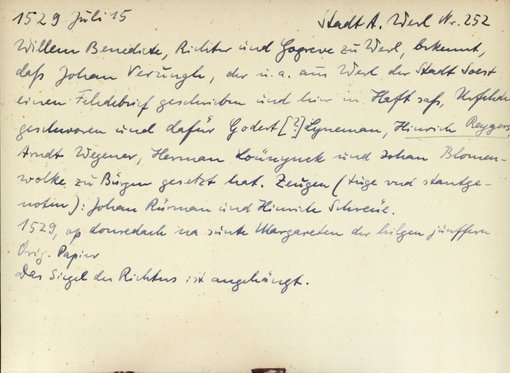 1529 Juli 15 Stadt A. Werl Nr. 252
Willem Benedicte, Richter und Gogreve zu Werl, bekennt,
daß Johan Verungh, der u. a. aus Werl der Stadt Soest
einen Fehdebrief geschrieben und hier in Haft saß, Urfehde
geschworen und dafür Godert [?] Lyneman, Hinrich Reygers,
Arndt Wegener, Herman Loüngnck und Johan Blomen-
wolke, zu Bürgen gesetzt hat. Zeugen (tüge vnd stantge-
noten): Johan Rürman und Hinrich Schreüe.
1529, op donredach na sünte Margareten der hilgen jünffern
Orig. Papier
Das Siegel des Richters ist angehängt.